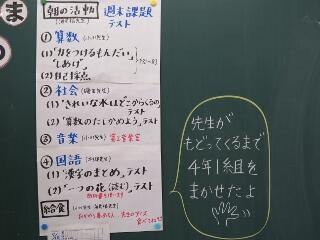 ま
朝の活動 週末課題
テスト
① 算数
(1)「力をつけるもんだい」
「しあげ」
(2) 自己採点
② 社会
(1)「きれいな水はどこからくるの」
テスト
(2)「算数のたしかめよう」テスト
③ 音楽
④ 国語
(1)「漢字のまとめ」テスト
(2)「一つの花(読む)」テスト
給食
先生が
もどってくるまで
4年1組を
まかせたよ